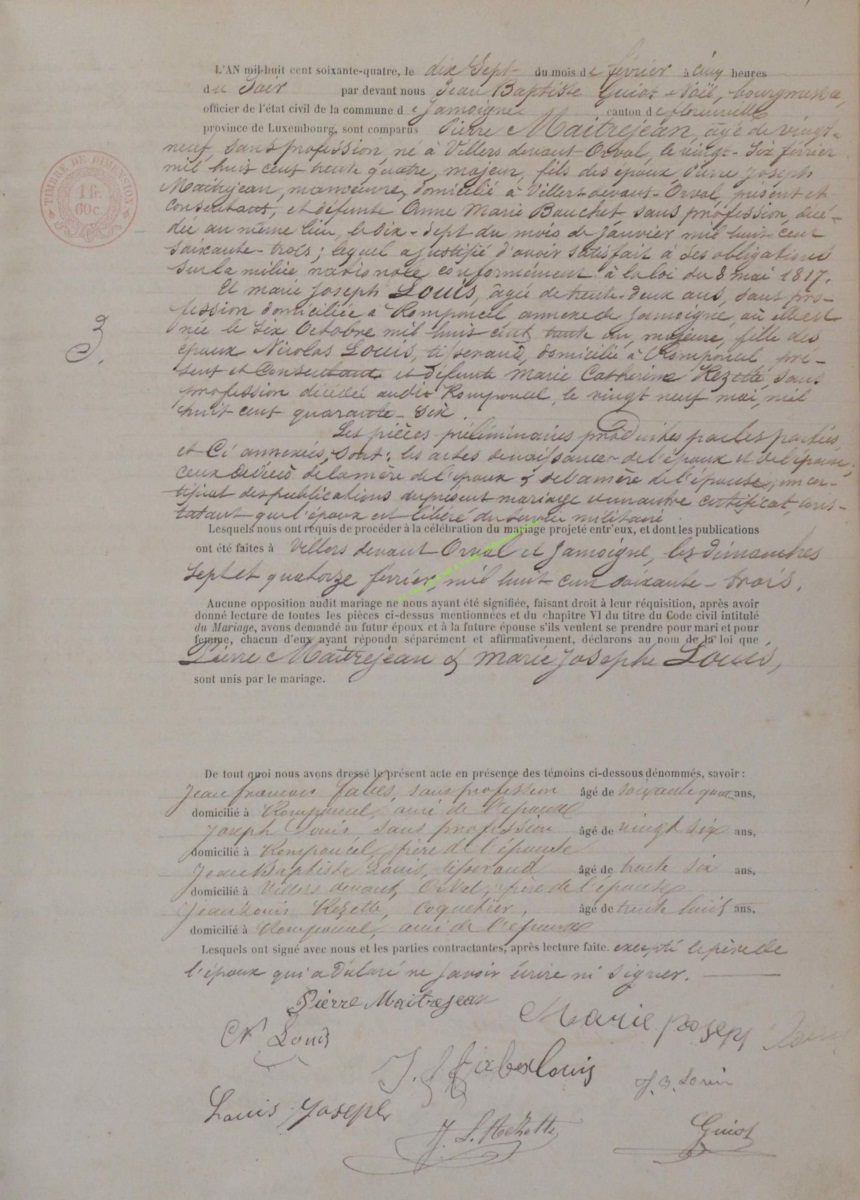 L'AN mil-huit cent soixante-quatre, le dix Sept du mois de février à cinq heures
du Soir par devant nous Jean Baptiste Guiot Noël, bourgmestre,
officier de l'état civil de la commune de Jamoigne canton de florenville
province de Luxembourg, sont comparus Pierre Maitrejean, âgé de vingt-
neuf, sans profession, né à Villers devant-Orval, le vingt-Six février
mil huit cent trente quatre, majeur, fils des époux Pierre Joseph
Maitrejean, manœuvre, domicilié à Villers devant-Orval, présent et
consentant, et défunte Anne Marie Bauchet, sans profession, décé-
dée au même lieu, le dix-Sept du mois de janvier mil huit cent
soixante-trois; lequel a justifié d'avoir satisfait à ses obligations
sur la milice nationale conformément à la loi du 8 mai 1817.
Et marie Joseph Louis, âgée de trente-deux ans, sans pro-
fession domiciliée à Romponcel annexe de Jamoigne, où elle est
née le Six Octobre mil huit cent trente un, majeure, fille des
époux Nicolas Louis, tisserand, domicilié à Romponcel pré-
sent et Consentant et défunte Marie Catherine Hezette, sans
profession décédée audit Romponcel, le vingt neuf mai, mil
huit cent quarante-Six.
3.
Les pièces préliminaires produites par les parties,
et Ci annexées, Sont: les actes de naissance de l'époux et de l'épouse,
ceux décès de la mère de l'époux & de la mère de l'épouse, un cer-
tificat des publications du présent mariage et un autre certificat cons-
tatant que l'époux est libéré du Service militaire.
Lesquels nous ont requis de procéder à la célébration du mariage projeté entr'eux, et dont les publications
ont été faites à Villers devant Orval et Jamoigne, les dimanches
Sept et quatorze février, mil huit cent soixante-trois.
Aucune opposition audit mariage ne nous ayant été signifiée, faisant droit à leur réquisition, après avoir
donné lecture de toutes les pièces ci-dessus mentionnées et du chapitre VI du titre du Code civil intitulé
du Mariage, avons demandé au futur époux et à la future épouse s'ils veulent se prendre pour mari et pour
femme, chacun d'eux ayant répondu séparément et affirmativement, déclarons au nom de la loi que
Pierre Maitrejean & marie Josephe Louis,
sont unis par le mariage.
De tout quoi nous avons dressé le présent acte en présence des témoins ci-dessous dénommés, savoir :
Jean francois, sans profession âgé de soixante ans,
domicilié à Romponcel, ami de l'epouse
Joseph Louis, sans profession âgé de vingt six ans,
domicilié à Romponcel, frère de l'épouse
Jean Baptiste Louis, tisserand âgé de trente six ans,
domicilié à Villers devant Orval, frère de l'épouse
Jean Louis Hezette, Coquetier, âgé de trente huit ans,
domicilié à Romponcel, ami de l'epouse
Lesquels ont signé avec nous et les parties contractantes, après lecture faite. excepté le père de
l'époux qui a déclaré ne savoir écrire ni Signer.
Pierre Maitrejean
Marie Joseph Louis
N Louis
J. B. Louis
Louis Joseph
J. L. Hezette
Guiot
TIMBRE DE DIMENSION
1 fr.
60 c.